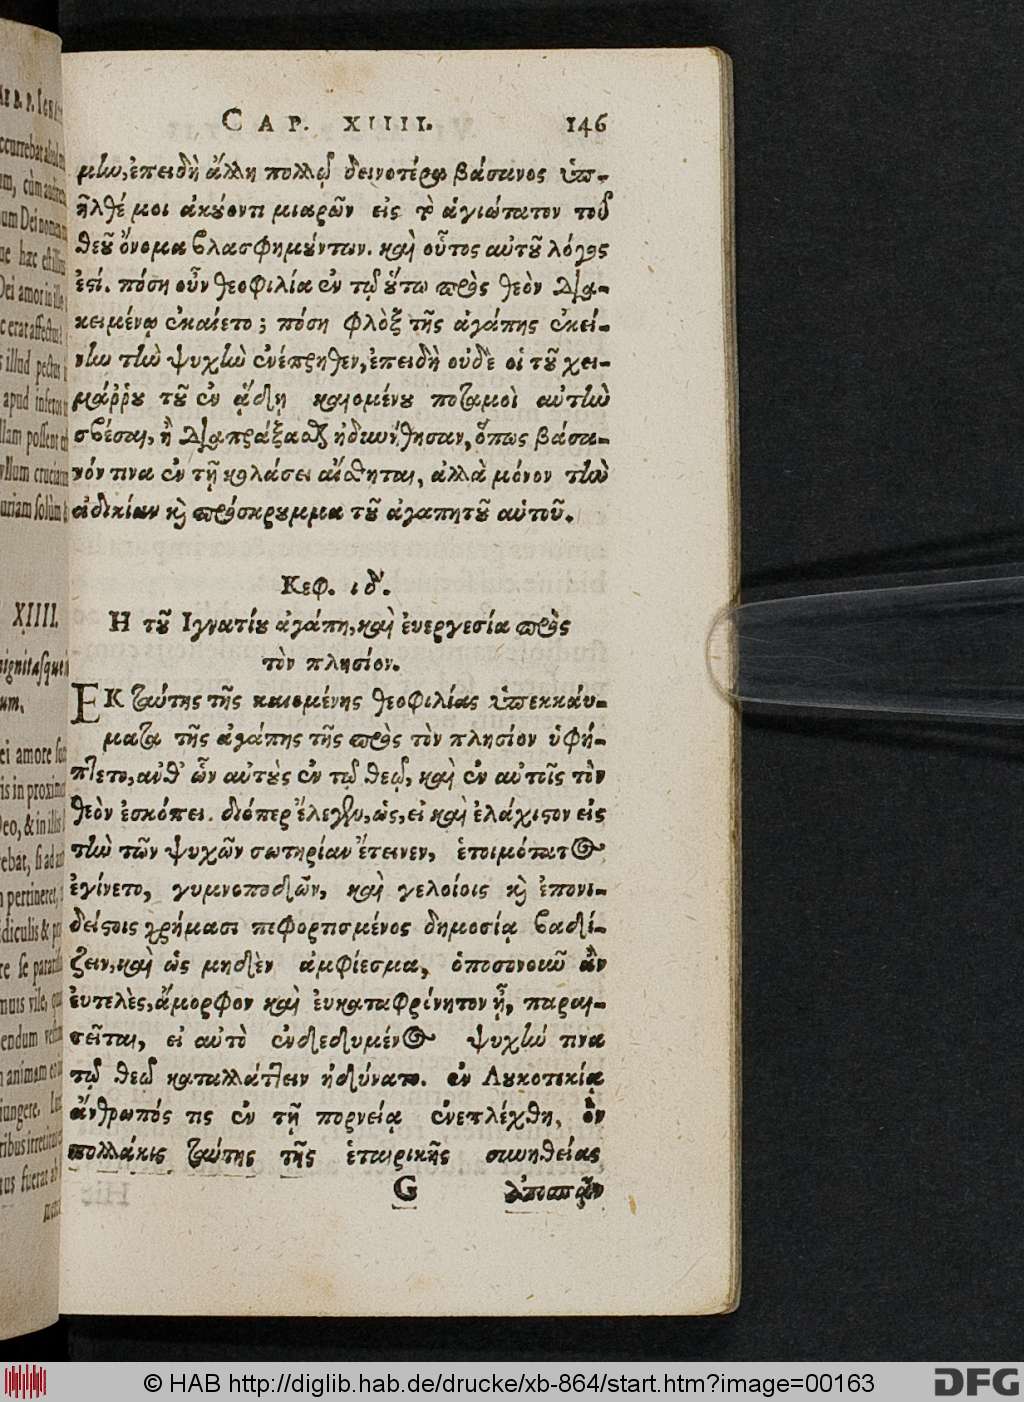 CAP. XIIII. 146
μὴν, ἐπειδὴ ἄλλη πολλῷ δεινοτέρῳ βάσανος ὑπ-
ῆλθέ μοι ἀκούοντι μιαρῶν εἰς τὸ ἁγιώτατον τοῦ
θεοῦ ὄνομα βλασφημούντων. καὶ οὗτος αὐτοῦ λόγος
ἐστί. πόση οὖν θεοφιλία ἐν τῷ οὕτω πρὸς θεὸν δια-
κειμένῳ ἐκαίετο; πόση φλὸξ τῆς ἀγάπης ἐκεί-
νην τὴν ψυχὴν ἐνέπρηθεν, ἐπειδὴ οὐδὲ οἱ τοῦ χει-
μάῤῥου τοῦ ἐν ᾅδῃ καιομένου ποταμοὶ αὐτὴν
σβέσαι, ἢ διαπράξασθαι ἠδυνήθησαν, ὅπως βάσα-
νόν τινα ἐν τῇ κολάσει αἴσθηται, ἀλλὰ μόνον τὴν
ἀδικίαν καὶ πρόσκρουμμα τοῦ ἀγαπητοῦ αὑτοῦ.
Κεφ. ιδʹ.
Η τοῦ Ιγνατίου ἀγάπη, καὶ ἐυεργεσία πρὸς
τὸν πλησίον.
ΕΚ ταύτης τῆς καιομένης θεοφιλίας ὑπεκκάυ-
ματα τῆς ἀγάπης τῆς πρὸς τὸν πλησίον ὑφή-
πτετο, ἀνθ' ὧν αὐτοὺς ἐν τῷ θεῷ, καὶ ἐν αὐτοῖς τὸν
θεὸν ἐσκόπει. διόπερ ἔλεγεν, ὡς, εἰ καὶ ἐλάχιστον εἰς
τὴν τῶν ψυχῶν σωτηρίαν ἔτεινεν, ἑτοιμότατος
ἐγίνετο, γυμνοποδῶν, καὶ γελοίοις καὶ ἐπονι-
δείστοις χρήμασι πεφορτισμένος δημοσίᾳ βαδί-
ζειν, καὶ ὡς μηδὲν ἀμφίεσμα, ὁποσονοῦν ἂν
ἐυτελὲς, ἄμορφον καὶ ἐυκαταφρόνητον ᾖ, παραι-
τεῖται, εἰ αὐτὸ ἐνδεδυμένος ψυχήν τινα
τῷ θεῷ καταλλάττειν ἠδύνατο. ἐν Λυκοτικίᾳ
ἄνθρωπός τις ἐν τῇ πορνείᾳ ἐνεπλέχθη, ὃν
πολλάκις ταύτης τῆς ἑταιρικῆς συνηθείας
G ἀποσπᾷν
XIIII.
© HAB http://diglib.hab.de/drucke/xb-864/start.htm?image=00163
DFG